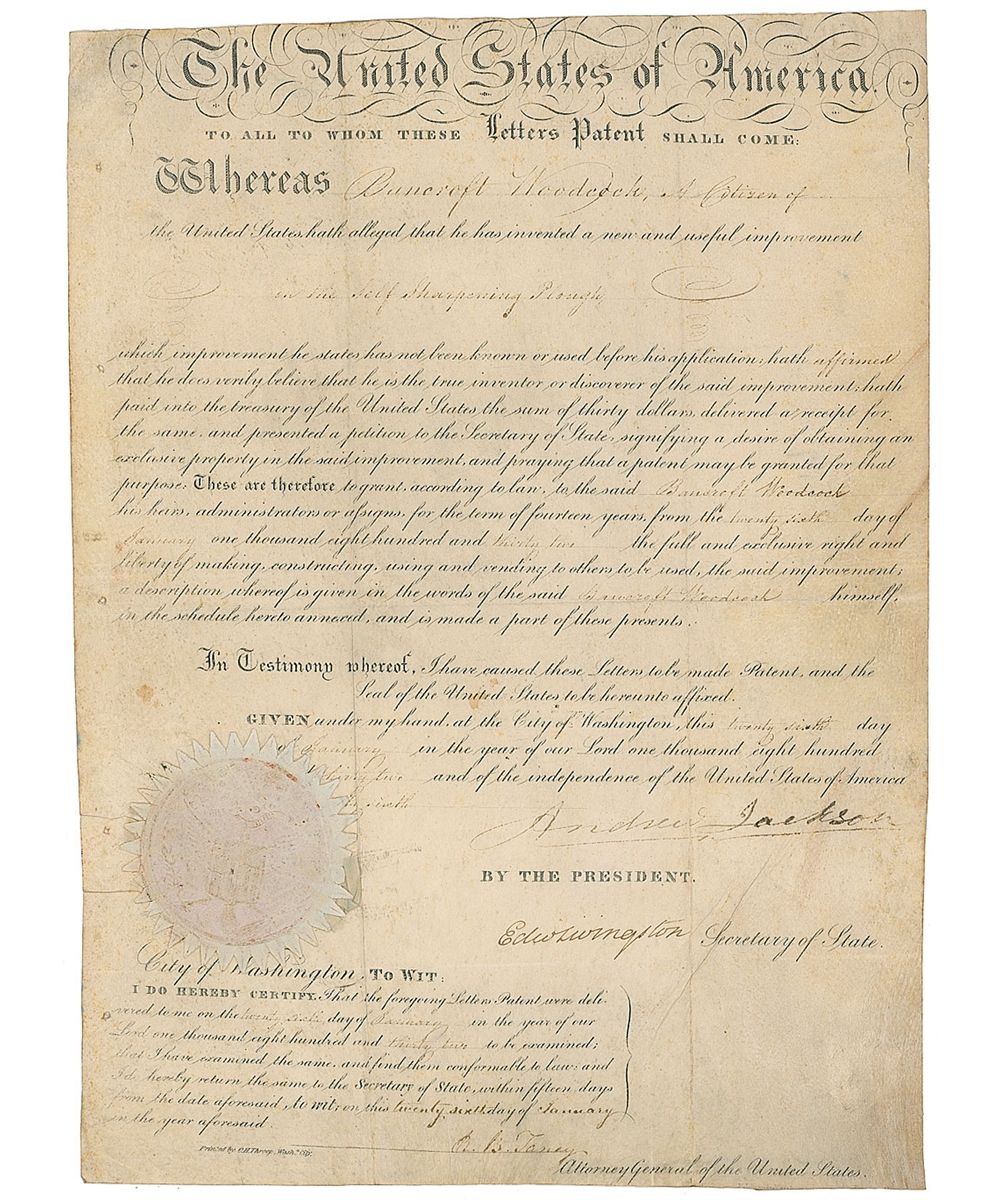 The United States of America.
TO ALL TO WHOM THESE Letters Patent SHALL COME:
Whereas Bancroft Woodcock, A Citizen of
the United States, hath alleged that he has invented a new and useful improvement
in the Self Sharpening Plough
which improvement he states has not been known or used before his application; hath affirmed
that he does verily believe that he is the true inventor or discoverer of the said improvement; hath
paid into the treasury of the United States the sum of thirty dollars, delivered a receipt for
the same, and presented a petition to the Secretary of State, signifying a desire of obtaining an
exclusive property in the said improvement, and praying that a patent may be granted for that
purpose: These are therefore to grant, according to law, to the said Bancroft Woodcock
his heirs, administrators or assigns, for the term of fourteen years, from the twenty sixth day of
January one thousand eight hundred and thirty two the full and exclusive right and
liberty of making, constructing, using and vending to others to be used, the said improvement;
a description whereof is given in the words of the said Bancroft Woodcock himself,
in the schedule hereto annexed, and is made a part of these presents.
In Testimony whereof, I have caused these Letters to be made Patent, and the
Seal of the United States to be hereunto affixed.
GIVEN under my hand, at the City of Washington, this twenty sixth day
of January in the year of our Lord one thousand eight hundred
thirty two and of the independence of the United States of America
sixth
Andrew Jackson
BY THE PRESIDENT.
Edw Livingston Secretary of State.
City of Washington, TO WIT:
I DO HEREBY CERTIFY, That the foregoing Letters Patent were deli-
vered to me on the twenty sixth day of January in the year of our
Lord one thousand eight hundred and thirty two to be examined;
that I have examined the same, and find them conformable to law; and
I do hereby return the same to the Secretary of State, within fifteen days
from the date aforesaid, to wit: on this twenty sixth day of January
in the year aforesaid.
R. B. Taney
Printed by C. H. Throop, Wash.n City.
Attorney General of the United States.